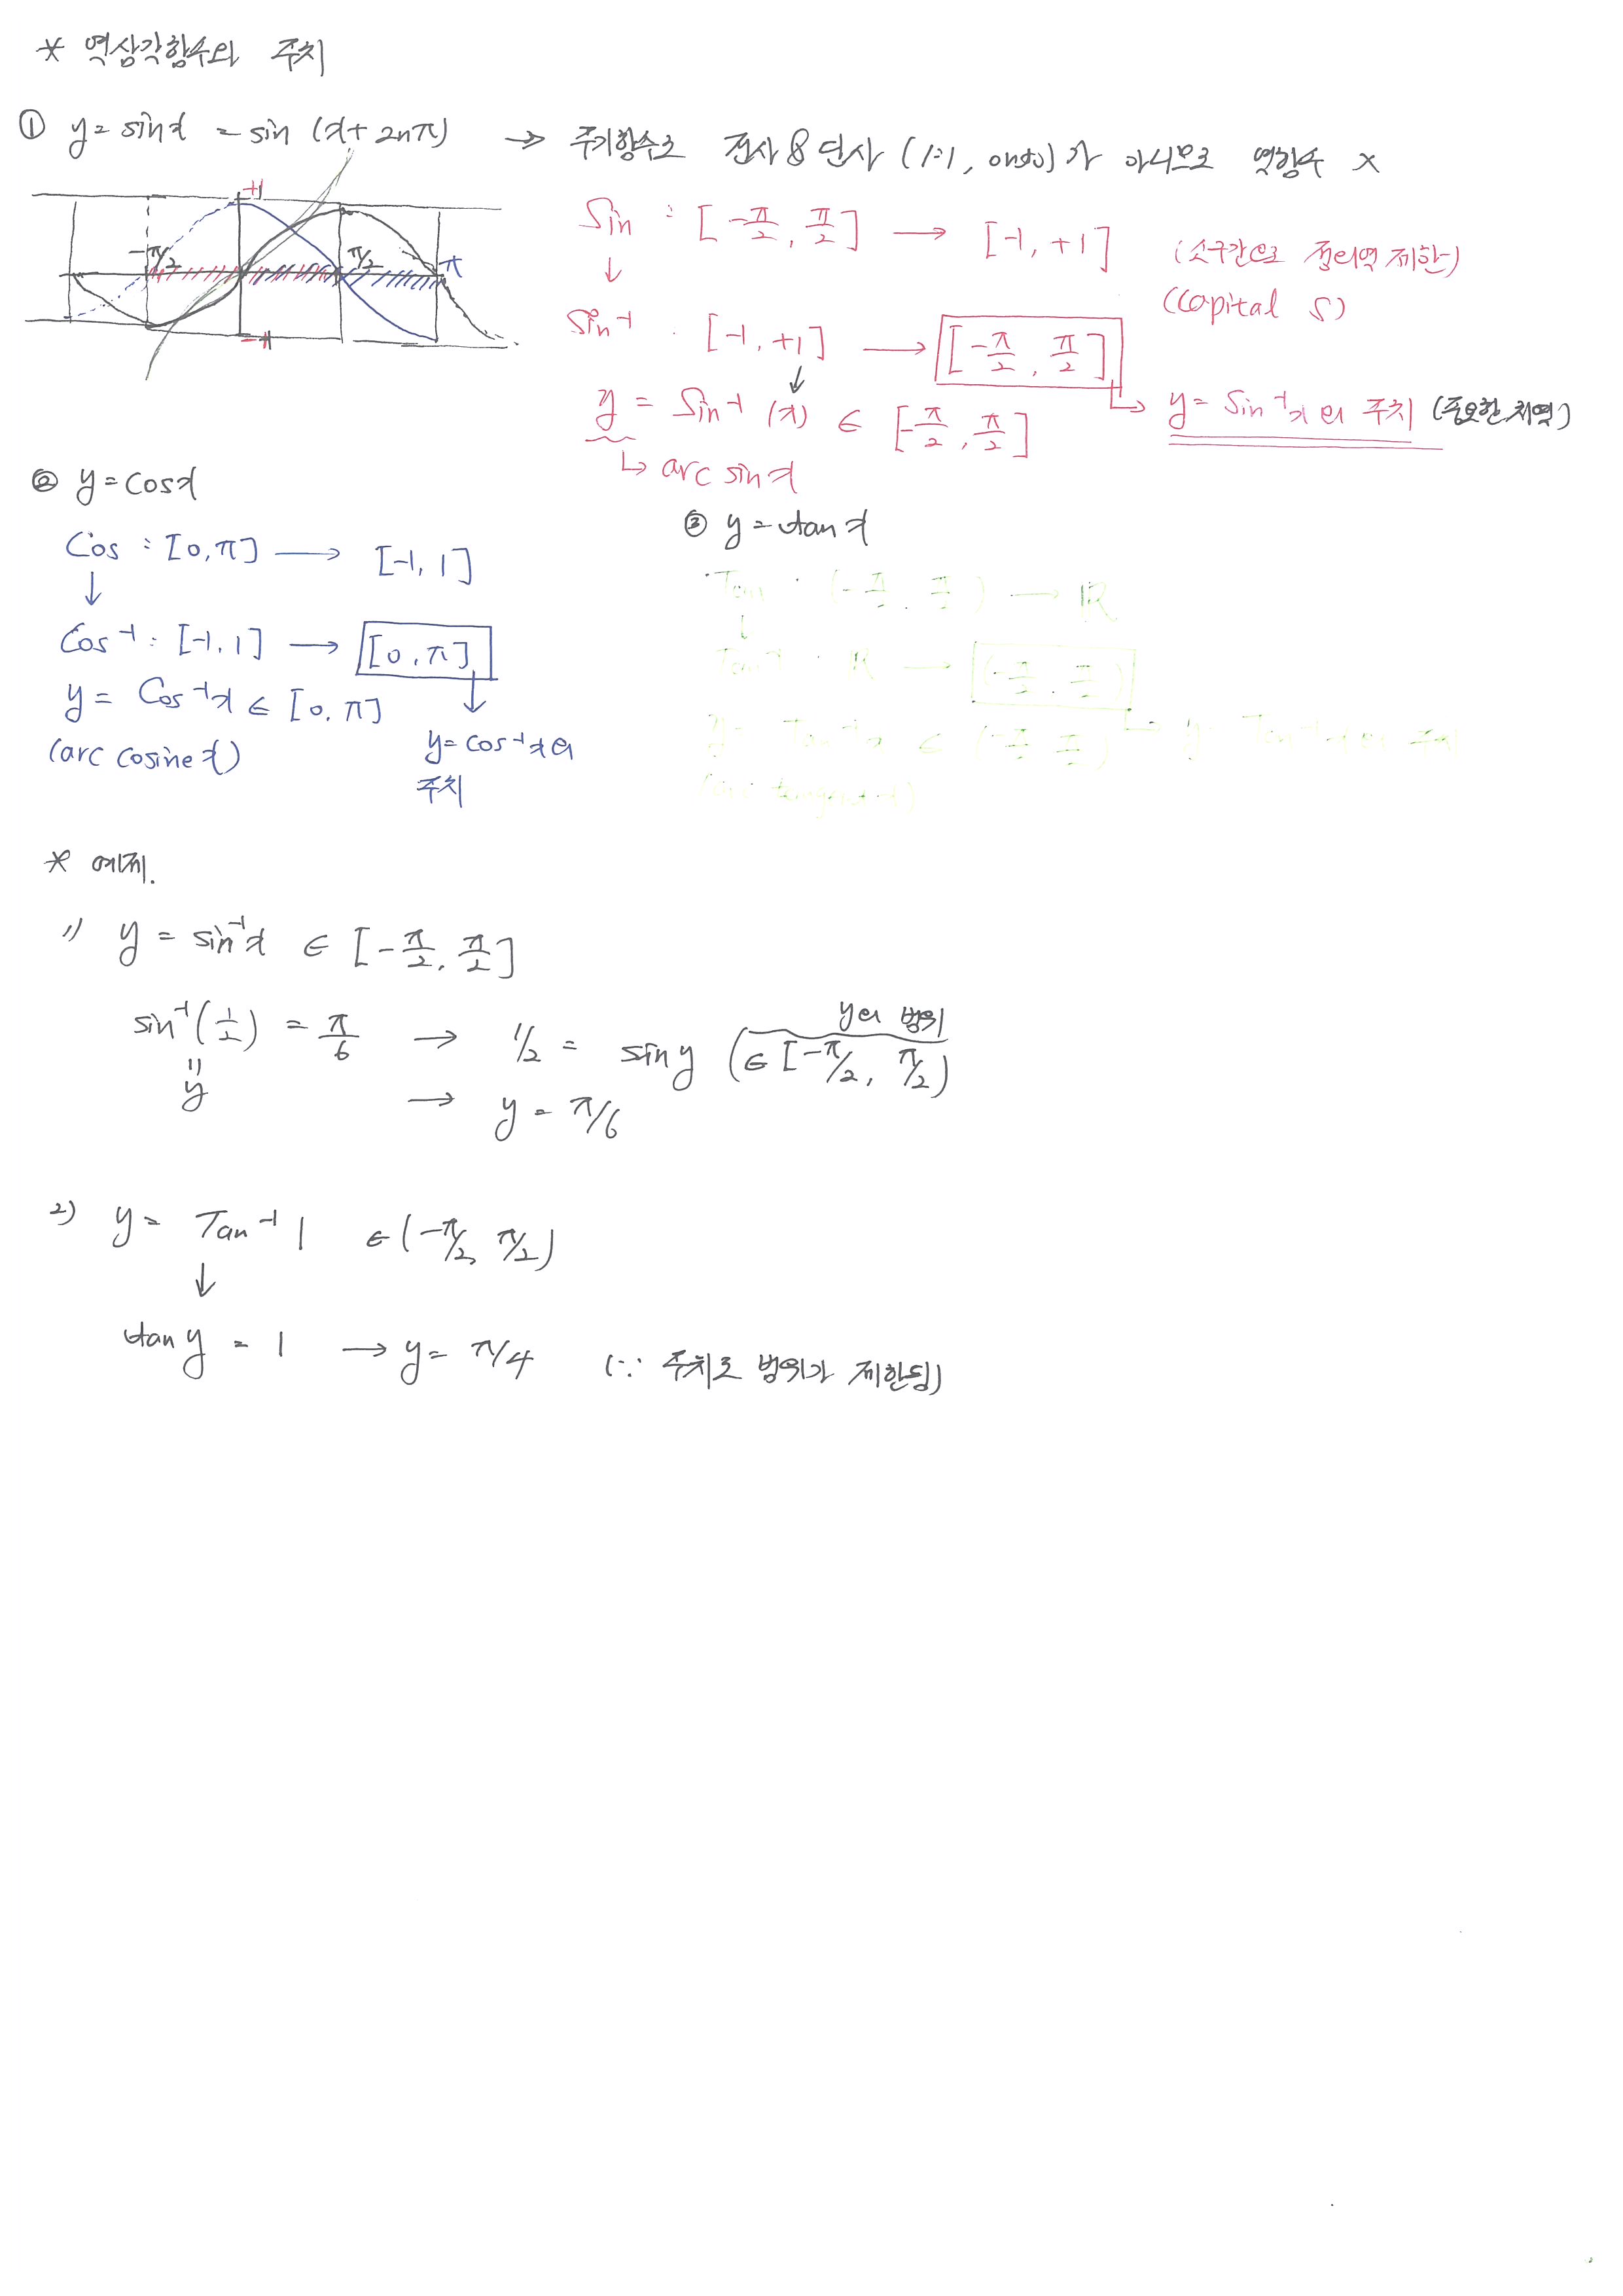 * 역삼각함수의 주치
① y = sin x = sin (x + 2nπ) → 주기함수로 전사 & 단사 (1:1, onto)가 아니므로 역함수 x
+1
-π/2 π/2 π
-1
Sin : [-π/2, π/2] → [-1, +1] (소구간으로 정의역 제한)
↓ (Capital S)
Sin⁻¹ : [-1, +1] → [-π/2, π/2]
y = Sin⁻¹ (x) ∈ [-π/2, π/2] ↳ y = Sin⁻¹x의 주치 (중요한 치역)
↳ arc sin x
② y = cos x
Cos : [0, π] → [-1, 1]
↓
Cos⁻¹ : [-1, 1] → [0, π]
y = Cos⁻¹x ∈ [0, π] ↓
(arc cosine x) y = cos⁻¹x의
주치
③ y = tan x
Tan : (-π/2, π/2) → ℝ
↓
Tan⁻¹ : ℝ → (-π/2, π/2)
y = Tan⁻¹x ∈ (-π/2, π/2) ↳ y = Tan⁻¹x의 주치
(arc tangent x)
* 예제.
1) y = sin⁻¹x ∈ [-π/2, π/2]
sin⁻¹(1/2) = π/6 → 1/2 = sin y (∈ [-π/2, π/2) y의 범위
=
y → y = π/6
2) y = Tan⁻¹ 1 ∈ (-π/2, π/2)
↓
tan y = 1 → y = π/4 (∵ 주치로 범위가 제한됨)